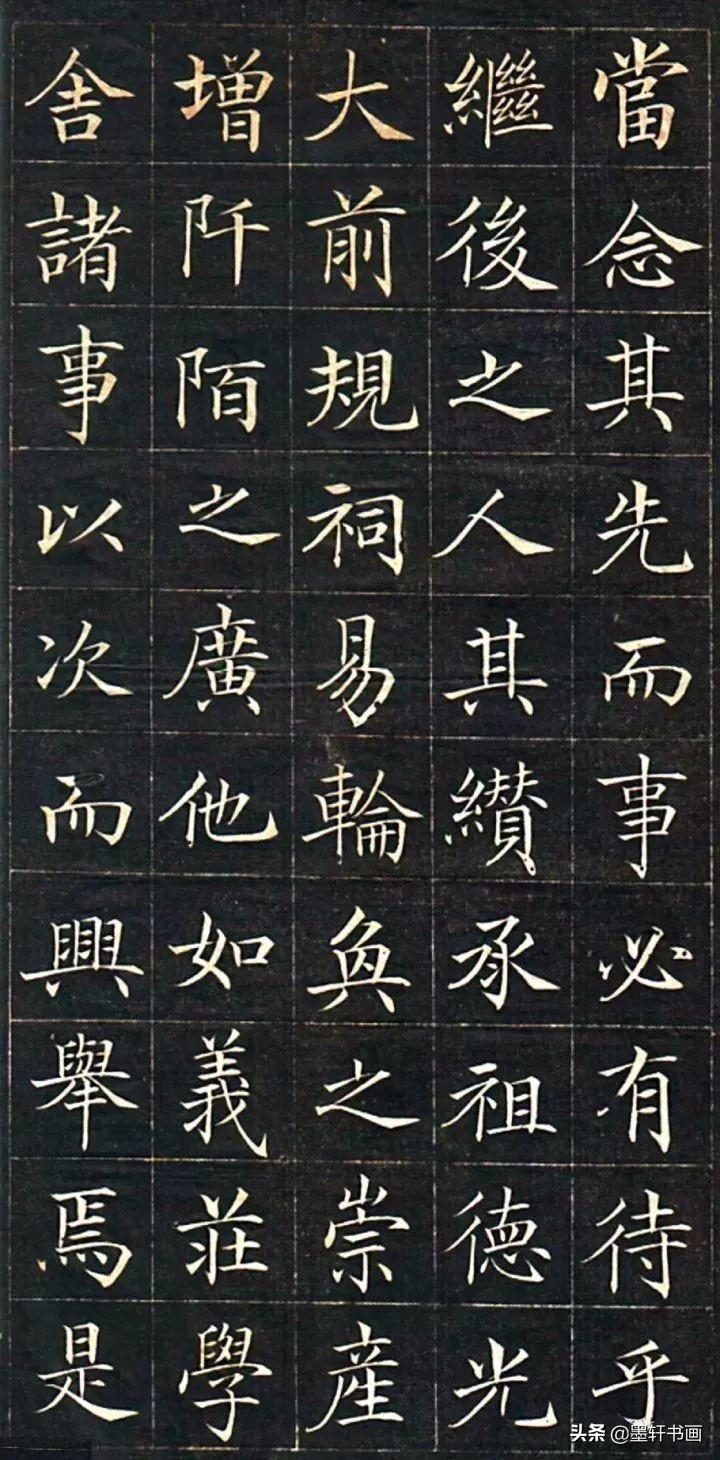 當念其先而事必有待乎
繼後之人其纘承祖德光
大前規祠易輪奐之崇産
增阡陌之廣他如義莊學
舍諸事以次而興舉焉是
头条 @墨轩书画